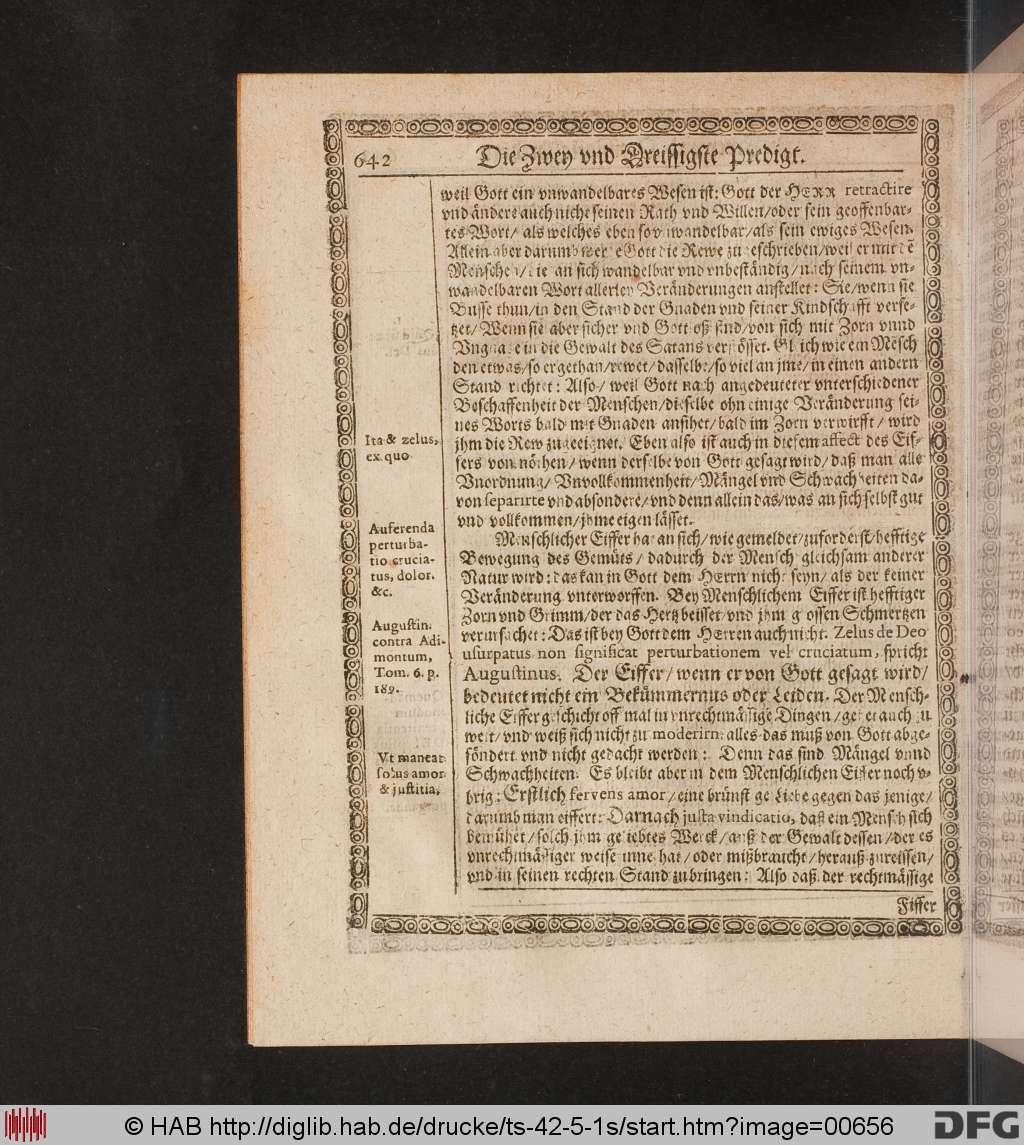 642
Die Zwey vnd Dreissigste Predigt.
weil Gott ein vnwandelbares Wesen ist: Gott der HERR retractire
vnd ändere auch nicht seinen Rath vnd Willen/oder sein geoffenbar-
tes Wort/ als welches eben so vnwandelbar/als sein ewiges Wesen.
Allein aber darumb werde Gott die Rewe zugeschrieben/weil er mit dē
Menschen/die an sich wandelbar vnd vnbeständig/nach seinem vn-
wandelbaren Wort allerley Veränderungen anstellet: Sie/wenn sie
Busse thun/in den Stand der Gnaden vnd seiner Kindschafft verse-
tzet/ Wenn sie aber sicher vnd Gottloß sind/von sich mit Zorn vnnd
Vngnade in die Gewalt des Satans verstösset. Gleich wie ein Mēsch
den etwas/so er gethan/rewet/dasselbe/so viel an jme/in einen andern
Stand richtet: Also/ weil Gott nach angedeuteter vnterschiedener
Beschaffenheit der Menschen/dieselbe ohn einige Veränderung sei-
nes Worts bald mit Gnaden ansihet/bald im Zorn verwirfft/ wird
jhm die Rew zugeeignet. Eben also ist auch in diesem affect des Eif-
fers von nöthen/ wenn derselbe von Gott gesagt wird/ daß man alle
Vnordnung/ Vnvollkommenheit/Mängel vnd Schwachheiten da-
von separirte vnd absondere/vnd denn allein das/was an sich selbst gut
vnd vollkommen/jhme eigen lässet.
Menschlicher Eiffer hat an sich/wie gemeldet/zuforderst/hefftige
Bewegung des Gemüts/ dadurch der Mensch gleichsam anderer
Natur wird: das kan in Gott dem HErrn nicht seyn/ als der keiner
Veränderung vnterworffen. Bey Menschlichem Eiffer ist hefftiger
Zorn vnd Grimm/der das Hertz beisset/vnd jhm grossen Schmertzen
verursachet: Das ist bey Gott dem HErren auch nicht. Zelus de Deo
usurpatus non significat perturbationem vel cruciatum, spricht
Augustinus. Der Eiffer/ wenn er von Gott gesagt wird/
bedeutet nicht ein Bekümmernus oder Leiden. Der Mensch-
liche Eiffer geschicht offtmal in vnrechtmässige Dingen/ gehet auch zu
weit/ vnd weiß sich nicht zu moderirn: alles das muß von Gott abge-
söndert vnd nicht gedacht werden: Denn das sind Mängel vnnd
Schwachheiten. Es bleibt aber in dem Menschlichen Eiffer noch v-
brig: Erstlich fervens amor/eine brünstige Liebe gegen das jenige/
darumb man eiffert: Darnach justa vindicatio, daß ein Mensch sich
bemühet/solch jhm geliebtes Werck/auß der Gewalt dessen/der es
vnrechtmässiger weise inne hat/oder mißbraucht/herauß zureissen/
vnd in seinen rechten Stand zubringen: Also daß der rechtmässige
Eiffer
Ita & zelus,
ex quo
Auferenda
perturba-
tio crucia-
tus, dolor.
&c.
Augustin.
contra Adi-
montum,
Tom. 6. p.
189.
Vt maneat
solus amor
& justitia.
© HAB http://diglib.hab.de/drucke/ts-42-5-1s/start.htm?image=00656
DFG